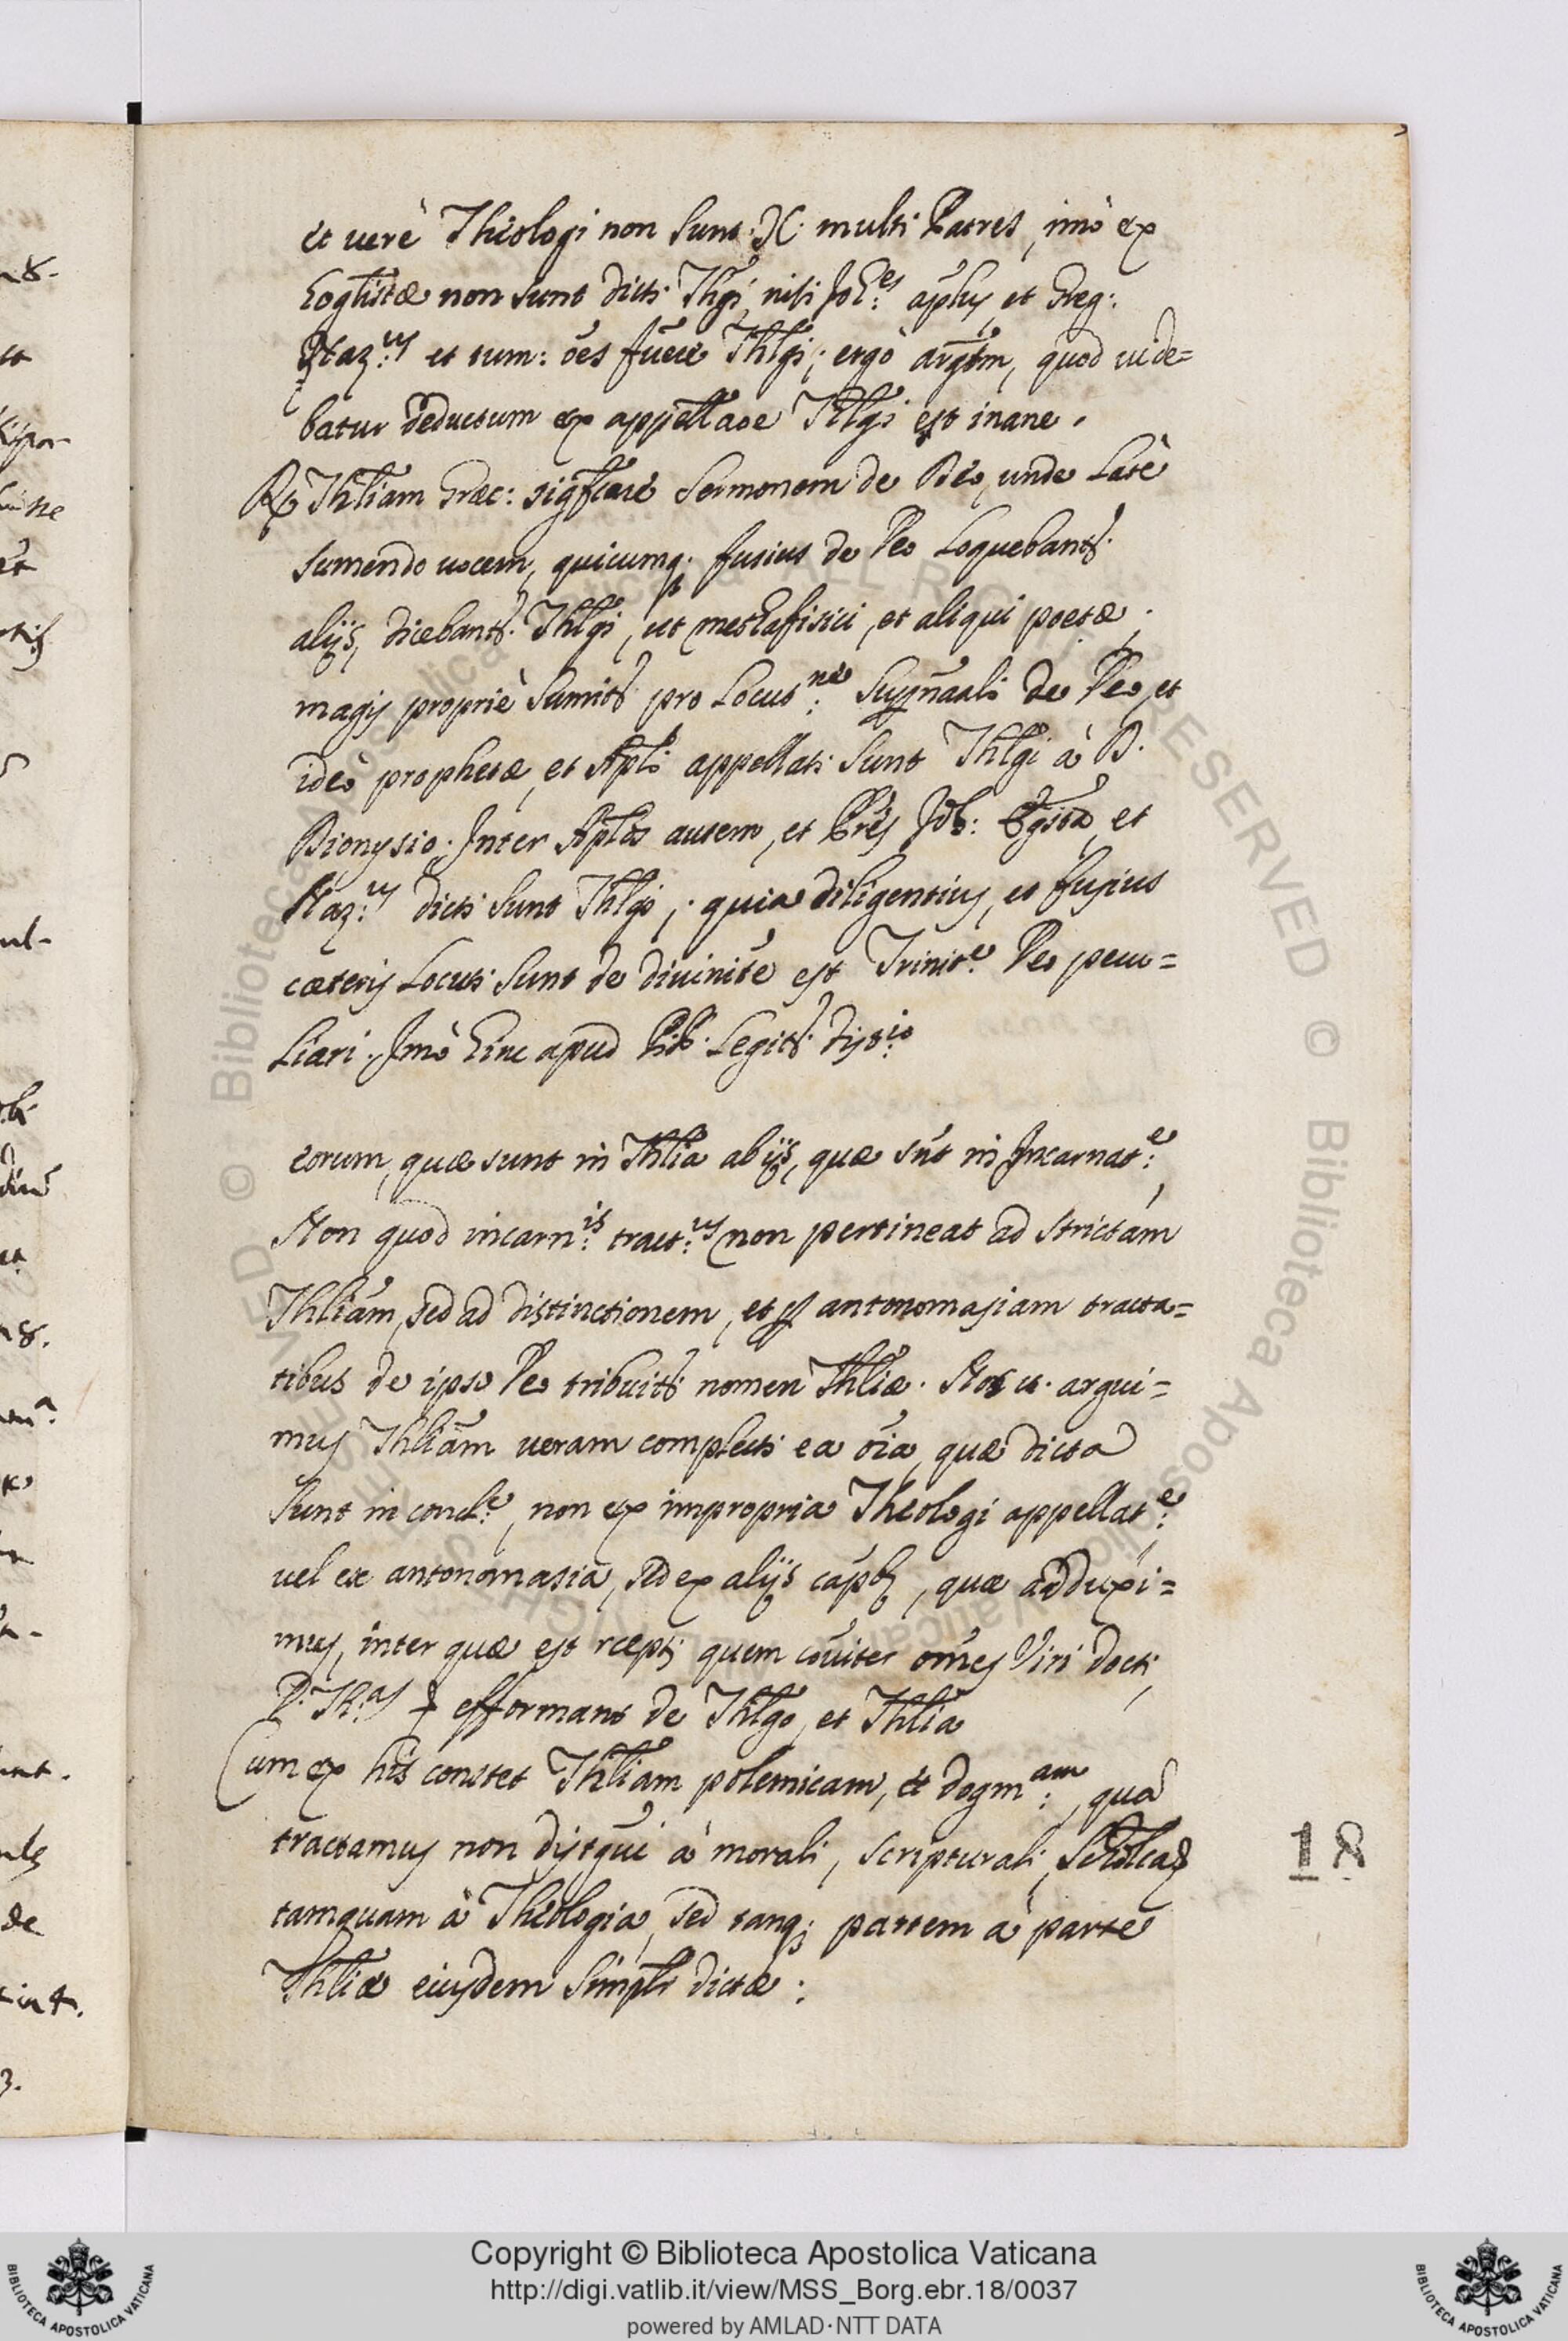 et uerè Theologi non sunt multi Patres, imò ex
non sunt dicti Thgi, nisi Joh:es aplus, et Greg:
Naz:us et tum: ões fuere Thlgi; ergò argtm, quod uide=
batur deductum ex appellaoe Thlgi est inane.
Rx Thliam Græc: sigfcare Sermonem de Deo, unde Latè
sumendo uocem, quicumq. fusius de Deo Loquebantr.
alijs, dicebantr. Thlgi, ut methafisici, et aliqui poetæ.
magis propriè Sumitr pro Locut:ne de Deo, et
ideò prophetæ, et Apli appellati Sunt Thlgi à D.
Dionysio. Inter Aplos autem, et Pres Joh: Egista, et
Naz:us dicti Sunt Thlgi; quia diligentius, et fusius
cæteris Locuti Sunt de diuinite est Trinit:e Deo pecu=
Liari. Imò hinc apud Legitr. dist:io
eorum, quæ sunt in Thlia ab ijs, quæ snt in Incarnat:e,
Non quod incarn:is tract:us non pertineat ad strictam
Thliam, sed ad distinctionem, et p antonomasiam tracta=
tibus de ipso Deo tribuitr. nomen Thliæ. Nos u. argui=
mus Thliam ueram complecti ea oia, quæ dicta
Sunt in concl:e, non ex impropria Theologi appellat:e,
uel ex antonomasia, sed ex alijs, quæ adduxi=
mus, inter quæ est quem cõuiter omes Viri docti,
D. Th:as efformant de Thlgo, et Thlia
Cum ex his constet Thliam polemicam, et dogm:am, quã
tractamus non distgui à morali, scripturali, Scholca
tamquam à Theologia, sed tanq; partem à parte
Thliæ eiusdem Simplr dictæ:
18
Copyright © Biblioteca Apostolica Vaticana
http://digi.vatlib.it/view/MSS_Borg.ebr.18/0037
powered by AMLAD·NTT DATA